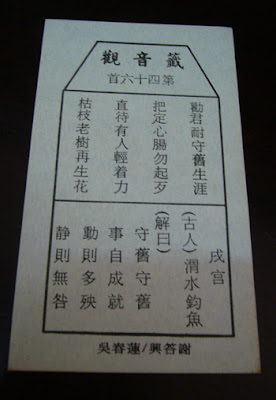 觀音籤
第四十六首
勸君耐守舊生涯
把定心腸勿起歹
直待有人輕着力
枯枝老樹再生花
戌宮
(古人) 渭水釣魚
(解曰)
守舊守舊
事自成就
動則多殃
静則無咎
吳春蓮/興答謝